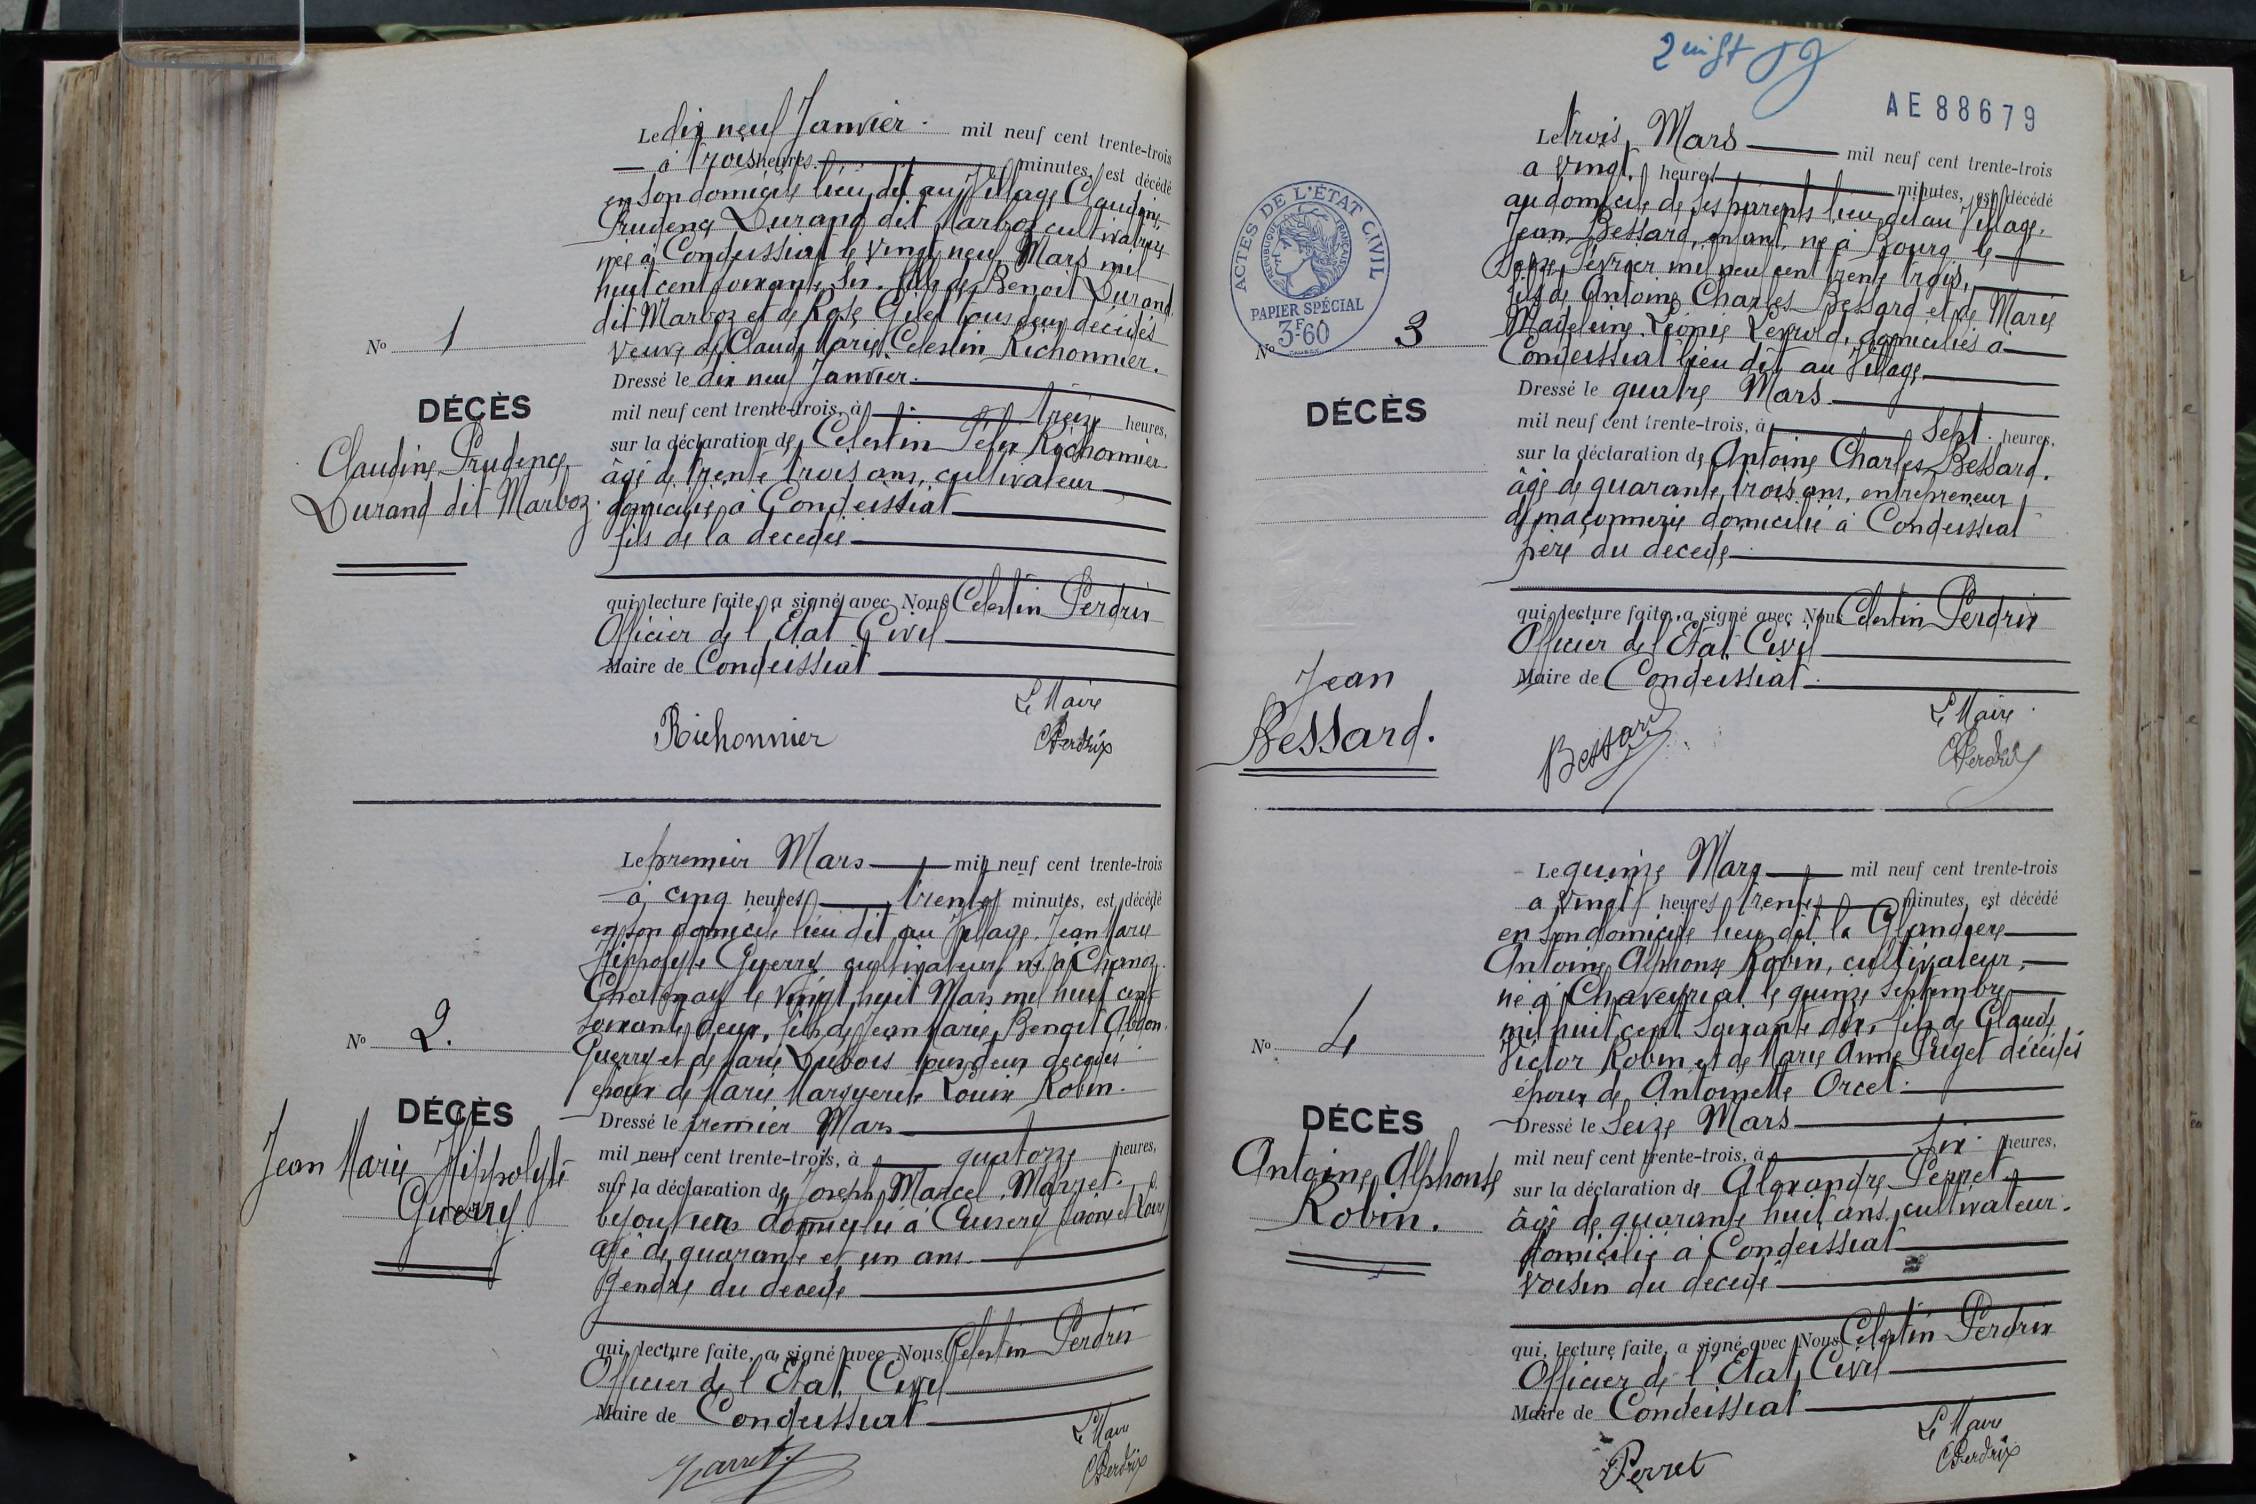 Le dix neuf Janvier. mil neuf cent trente-trois
à trois heures minutes, est décédé
en son domicile lieu dit au Village Claudine
Prudence Durand dit Marboz cultivatrice
née à Condeissiat le vingt neuf Mars mil
huit cent soixante six. fille de Benoit Durand
dit Marboz et de Rose Gilet tous deux décédés
veuve de Claude Marie Celestin Richonnier.
Nº 1
Dressé le dix neuf Janvier.
DÉCÈS
mil neuf cent trente-trois, à treize heures,
sur la déclaration de Celestin Félix Richonnier
Claudine Prudence
âgé de trente trois ans, cultivateur
Durand dit Marboz.
domicilié à Condeissiat
fils de la décédée
qui, lecture faite, a signé avec Nous Celestin Perdrix
Officier de l'Etat Civil
Maire de Condeissiat
Le Maire
Richonnier
CPerdrix
Le premier Mars mil neuf cent trente-trois
à cinq heures trente minutes, est décédé
en son domicile lieu dit au Village. Jean Marie
Hippolyte Guerry cultivateur, né à Chanoz
Chatenay le vingt huit Mars mil huit cent
soixante deux, fils de Jean Marie Benoit
Nº 2.
Guerry et de Marie Dubois tous deux décédés
époux de Marie Marguerite Louise Robin.
DÉCÈS
Dressé le premier Mars
Jean Marie Hippolyte
Guerry
mil neuf cent trente-trois, à quatorze heures,
sur la déclaration de Joseph Marcel Marret.
bijoutier domicilié à Cuisery Saone et Loire
âgé de quarante et un ans
gendre du décédé
qui, lecture faite, a signé avec Nous Celestin Perdrix
Officier de l'Etat Civil
Maire de Condeissiat
Le Maire
Marret
CPerdrix
2 uift 59
AE88679
Le trois Mars mil neuf cent trente-trois
a vingt heures minutes, est décédé
au domicile de ses parents lieu dit au Village.
Jean Bessard, enfant né à Bourg le
Février mil neuf cent trente trois,
fils de Antoine Charles Bessard et de Marie
Madeleine Léonie domiciliés à
Condeissiat lieu dit au Village
ACTES DE L'ÉTAT CIVIL
RÉPUBLIQUE FRANÇAISE
PAPIER SPÉCIAL
3F60
Nº 3
Dressé le quatre Mars
DÉCÈS
mil neuf cent trente-trois, à sept heures,
sur la déclaration de Antoine Charles Bessard.
âgé de quarante trois ans, entrepreneur
de maçonnerie domicilié à Condeissiat
père du décédé
qui, lecture faite, a signé avec Nous Celestin Perdrix
Officier de l'Etat Civil
Maire de Condeissiat
Jean
Bessard.
Le Maire
Bessard
CPerdrix
Le quinze Mars mil neuf cent trente-trois
a vingt heures trente minutes, est décédé
en son domicile lieu dit la Glandière
Antoine Alphonse Robin, cultivateur,
né à Chaveyriat le quinze septembre
mil huit cent soixante dix, fils de Claude
Victor Robin et de Marie Anne Puget décédés
époux de Antoinette Orcet.
Nº 4
DÉCÈS
Antoine Alphonse
Robin.
Dressé le seize Mars
mil neuf cent trente-trois, à six heures,
sur la déclaration de Alexandre Perret
âgé de quarante huit ans, cultivateur.
domicilié à Condeissiat
voisin du décédé
qui, lecture faite, a signé avec Nous Celestin Perdrix
Officier de l'Etat Civil
Maire de Condeissiat
Le Maire
Perret
CPerdrix